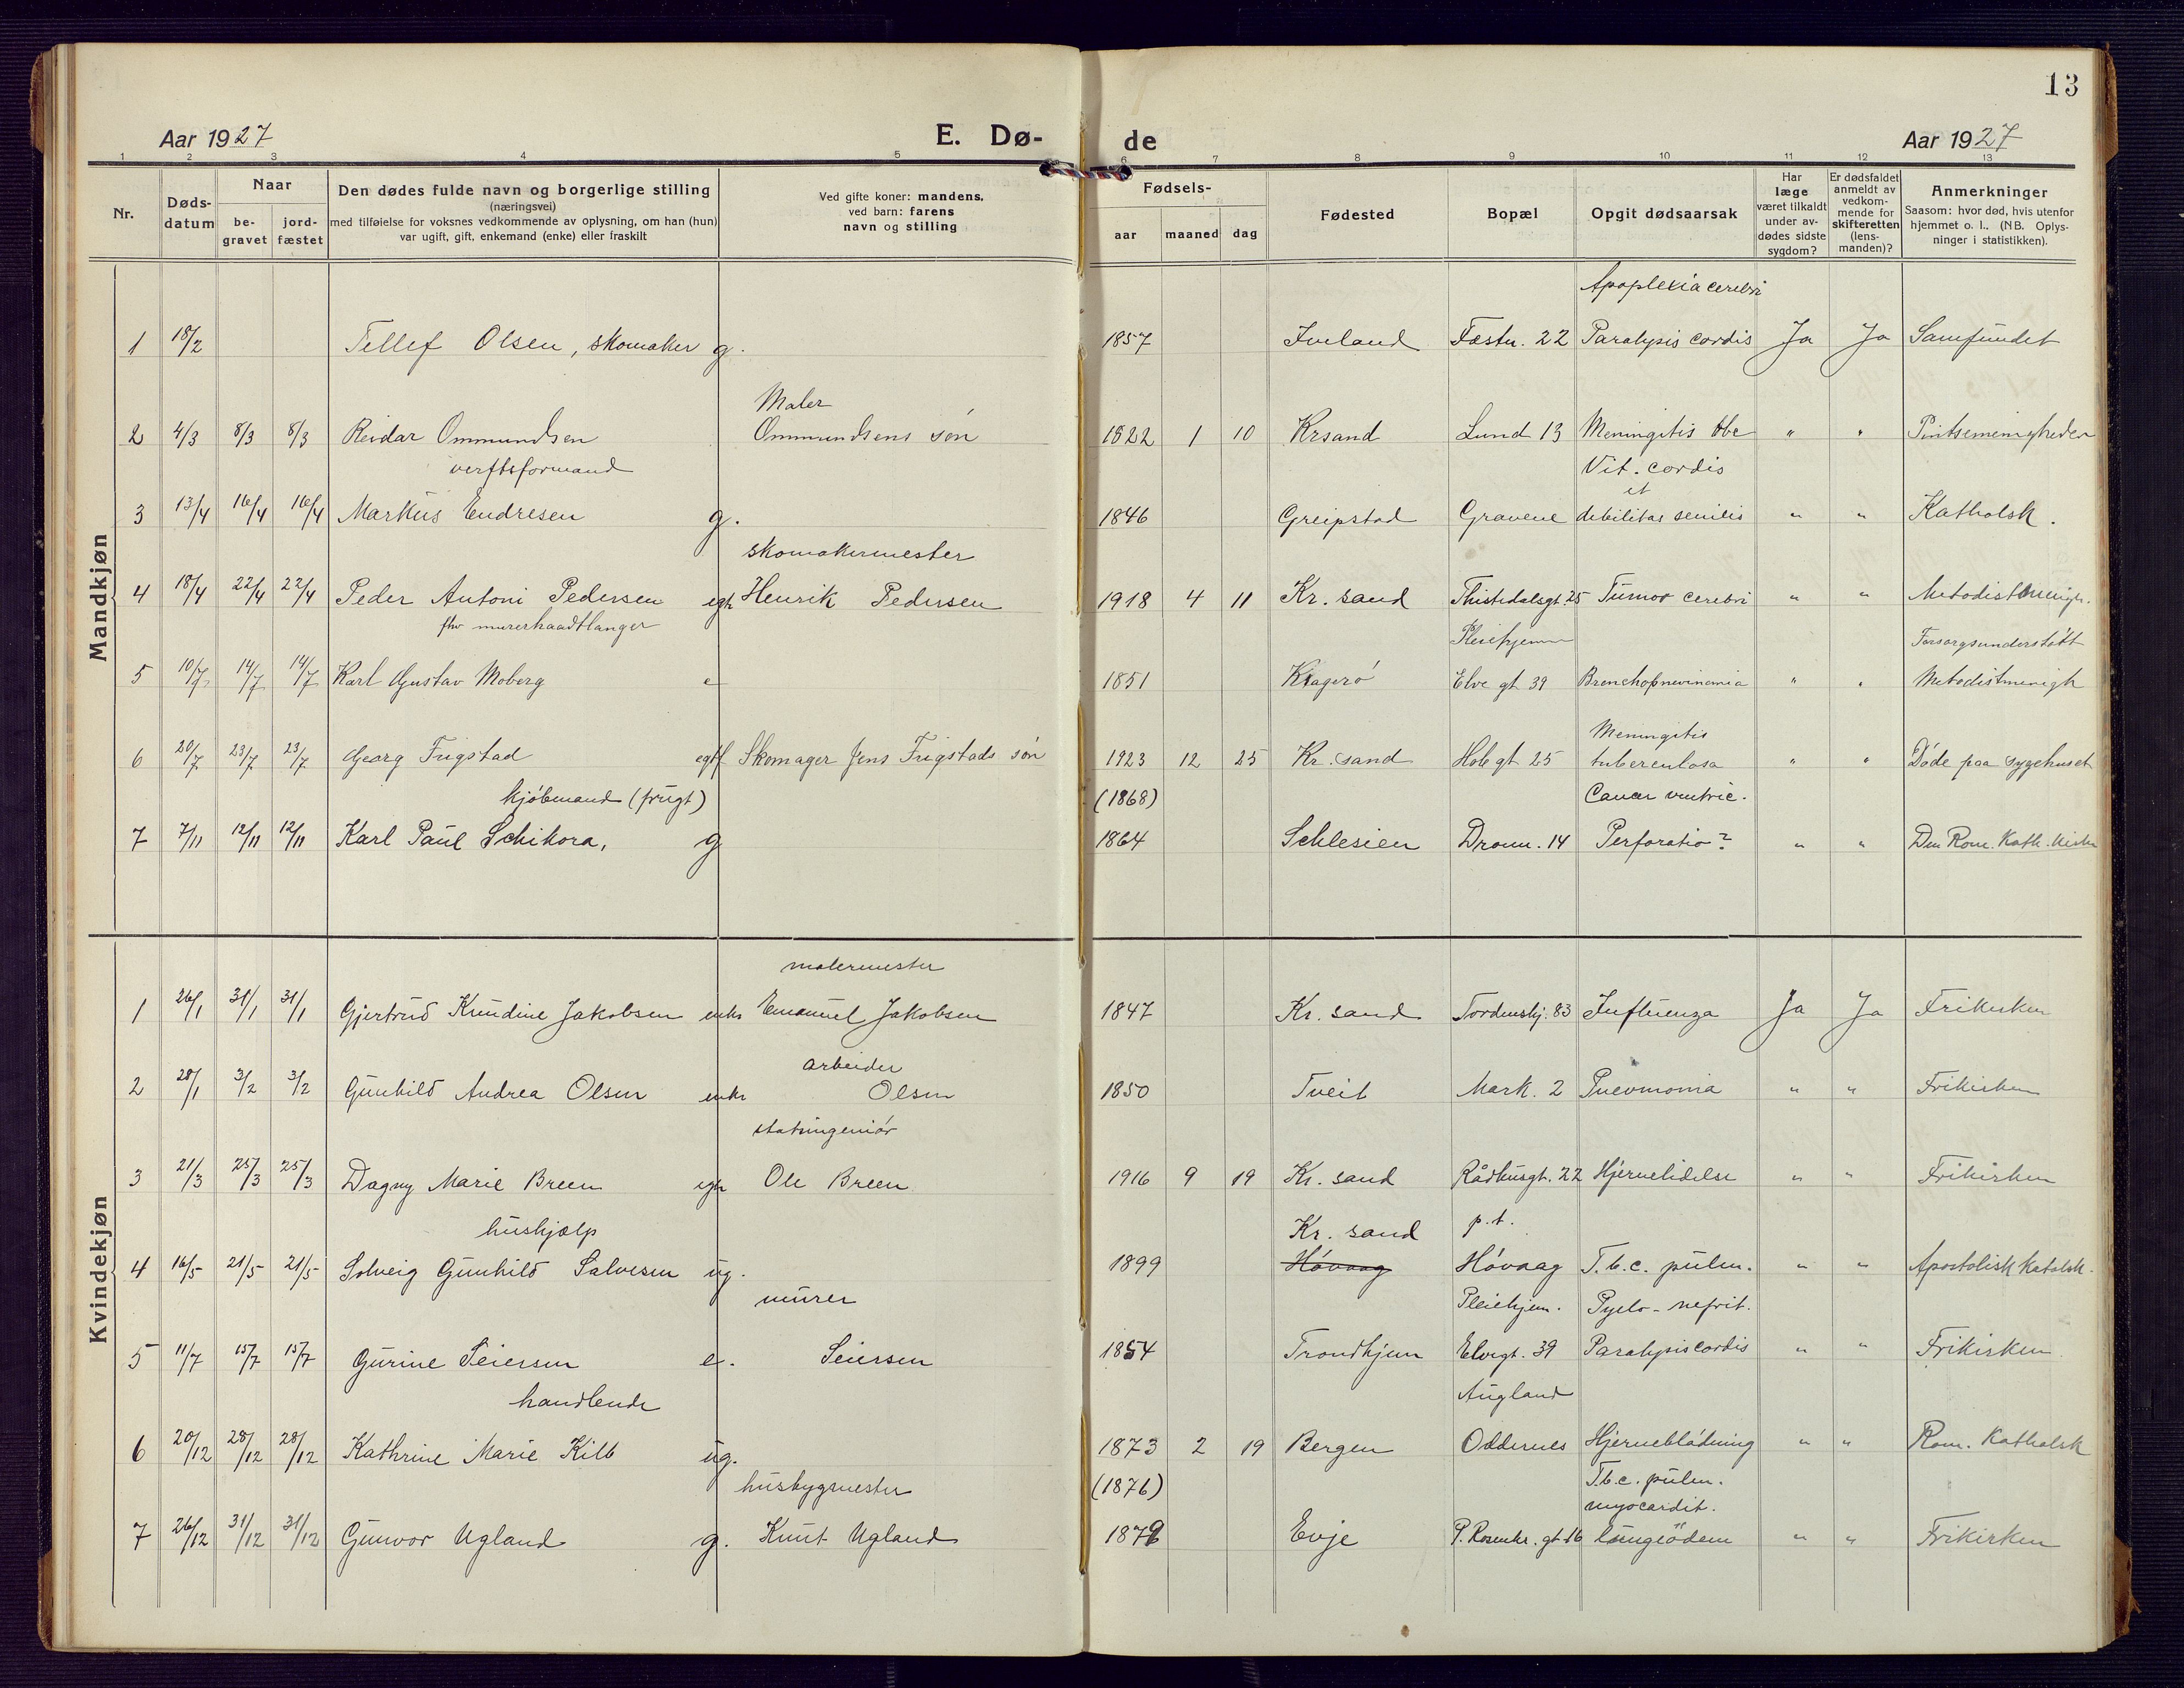 13
Aar 1927 E. Dø- de Aar 1927
1 2 3 4 5 6 7 8 9 10 11 12 13
Nr.
Døds-
datum
Naar
be-
gravet
jord-
fæstet
Den dødes fulde navn og borgerlige stilling
(næringsvei)
med tilføielse for voksnes vedkommende av oplysning, om han (hun)
var ugift, gift, enkemand (enke) eller fraskilt
Ved gifte koner: mandens,
ved barn: farens
navn og stilling
Fødsels-
aar maaned dag
Fødested
Bopæl
Opgit dødsaarsak
Har
læge
været tilkaldt
under av-
dødes sidste
sygdom?
Er dødsfaldet
anmeldt av
vedkom-
mende for
skifteretten
(lens-
manden)?
Anmerkninger
Saasom: hvor død, hvis utenfor
hjemmet o. l.. (NB. Oplys-
ninger i statistikken).
Mandkjøn
Apoplexia cerebri
1 18/2 Tellef Olsen, skomaker g. 1857 Iveland Festn. 22 Paralysis cordis Ja Ja Samfundet
Maler
2 4/3 8/3 8/3 Reidar Ommundsen Ommundsens søn 1922 1 10 Krsand Lund 13 Meningitis tbc " " Pintsemenigheden
verftsformand Vit. cordis
et
3 13/4 16/4 16/4 Markus Endresen g. 1846 Greipstad Gravene debilitas senilis " " Katholsk.
skomakermester
4 18/4 22/4 22/4 Peder Antoni Pedersen egte Henrik Pedersen 1918 4 11 Kr. sand Thistedalsgt. 25 Tumor cerebri " " Metodistmenigh.
fhv murerhaandtlanger Pleiehjemm Forsorgsunderstøtt
5 10/7 14/7 14/7 Karl Gustav Moberg e 1851 Kragerø Elve gt 39 Bronchopnevmonia " " Metodistmenigh
Meningitis
6 20/7 23/7 23/7 Georg Frigstad egtf Skomager Jens Frigstads søn 1923 12 25 Kr. sand Holb gt 25 tuberculosa " " Døde paa sygehuset
kjøbmand (frugt) (1868) Cancer ventric.
7 7/11 12/11 12/11 Karl Paul Schikora, g 1864 Schlesien Dronn. 14 Perforatio? " " Den Rom. Kath. Kirke
Kvindekjøn
malermester
1 26/1 31/1 31/1 Gjertrud Knudine Jakobsen enke Emanuel Jakobsen 1847 Kr. sand Tordenskj. 83 Influenza Ja Ja Frikirken
arbeider
2 28/1 3/2 3/2 Gunhild Andrea Olsen enke Olsen 1850 Tveit Mark. 2 Pnevmonia " " Frikirken
statsingeniør
3 21/3 25/3 25/3 Dagny Marie Breen egte Ole Breen 1916 9 19 Kr. sand Rådhusgt. 22 Hjernelidelse " " Frikirken
hushjælp Kr. sand p.t.
4 16/5 21/5 21/5 Solveig Gunhild Salvesen ug. 1899 Høvaag Høvaag T.b.c. pulm. " " Apostolisk Katolsk.
murer Pleiehjem. Pyelo-nefrit.
5 11/7 15/7 15/7 Gurine Seiersen e. Seiersen 1854 Trondhjem Elvegt. 39 Paralysis cordis " " Frikirken
handlende Augland
6 20/12 28/12 28/12 Kathrine Marie Kilb ug. 1873 2 19 Bergen Oddernes Hjerneblødning " " Rom. Katholsk
husbygmester (1876) T.b.c. pulm.
myocardit.
7 26/12 31/12 31/12 Gunvor Ugland g. Knut Ugland 1879 Evje P. Rosenkr. gt 16 lungeödem " " Frikirken